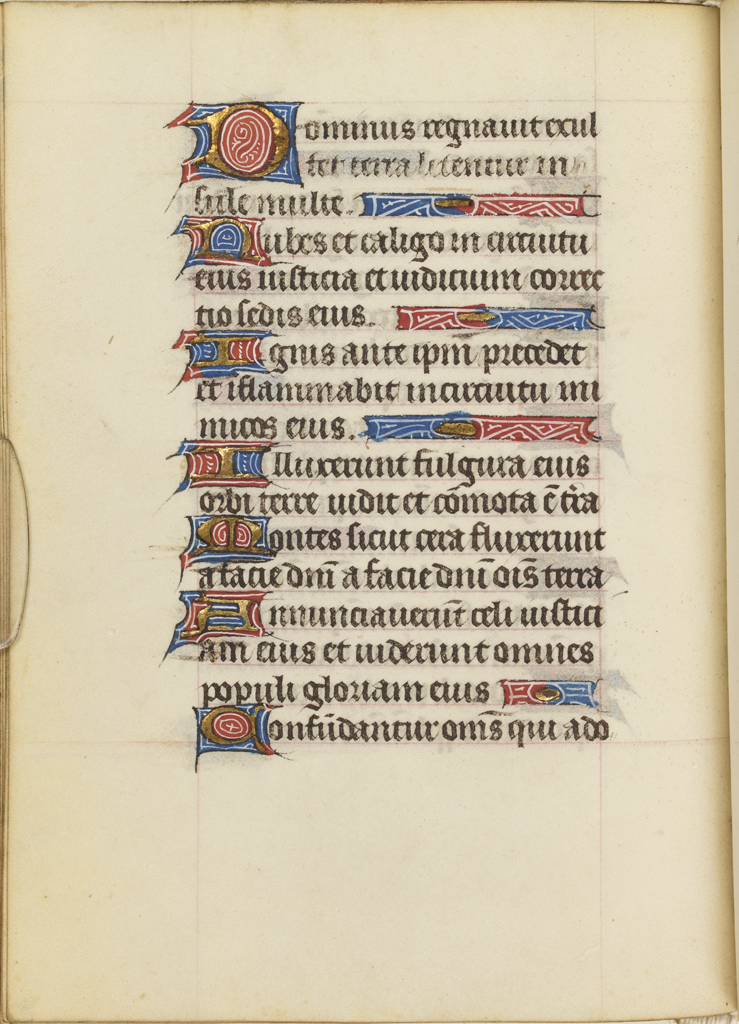 Dominus regnavit exul
tet terra letentur in
sule multe.
Nubes et caligo in circuitu
eius iusticia et iudicium correc
tio sedis eius.
Ignis ante ipm̄ precedet
et īflammabit in circuitu ini
micos eius.
Illuxerunt fulgura eius
orbi terre uidit et cōmota ē tr̄a
Montes sicut cera fluxerunt
a facie dn̄i a facie dn̄i oīs terra
Annunciauerūt celi iustici
am eius et uiderunt omnes
populi gloriam eius
Confūdantur om̄s qui ado